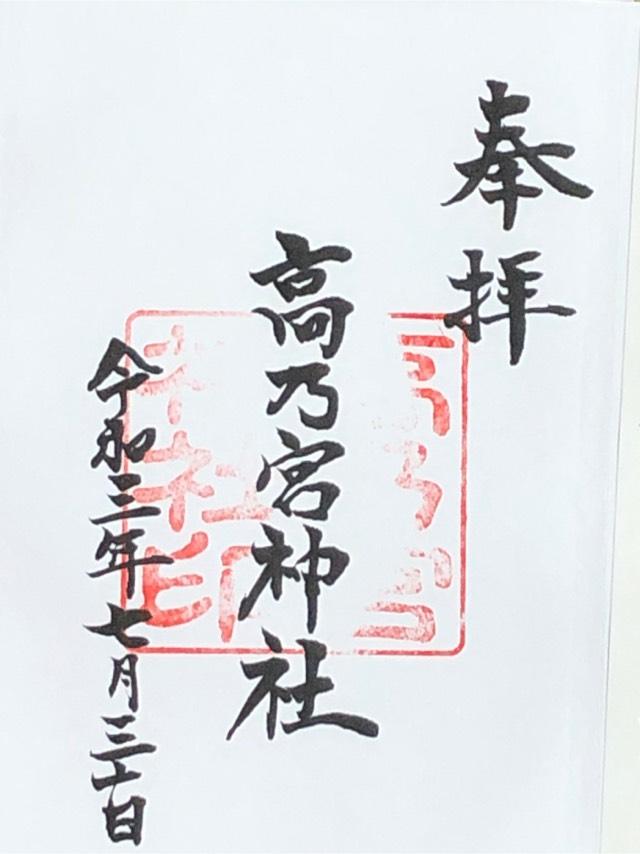 奉拝
高乃宮神社
令和三年七月三十日